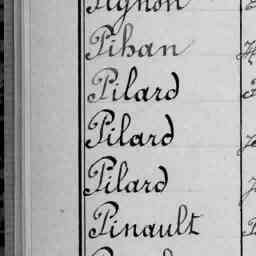 Pignon
Pihan
Pilard
Pilard
Pilard
Pinault